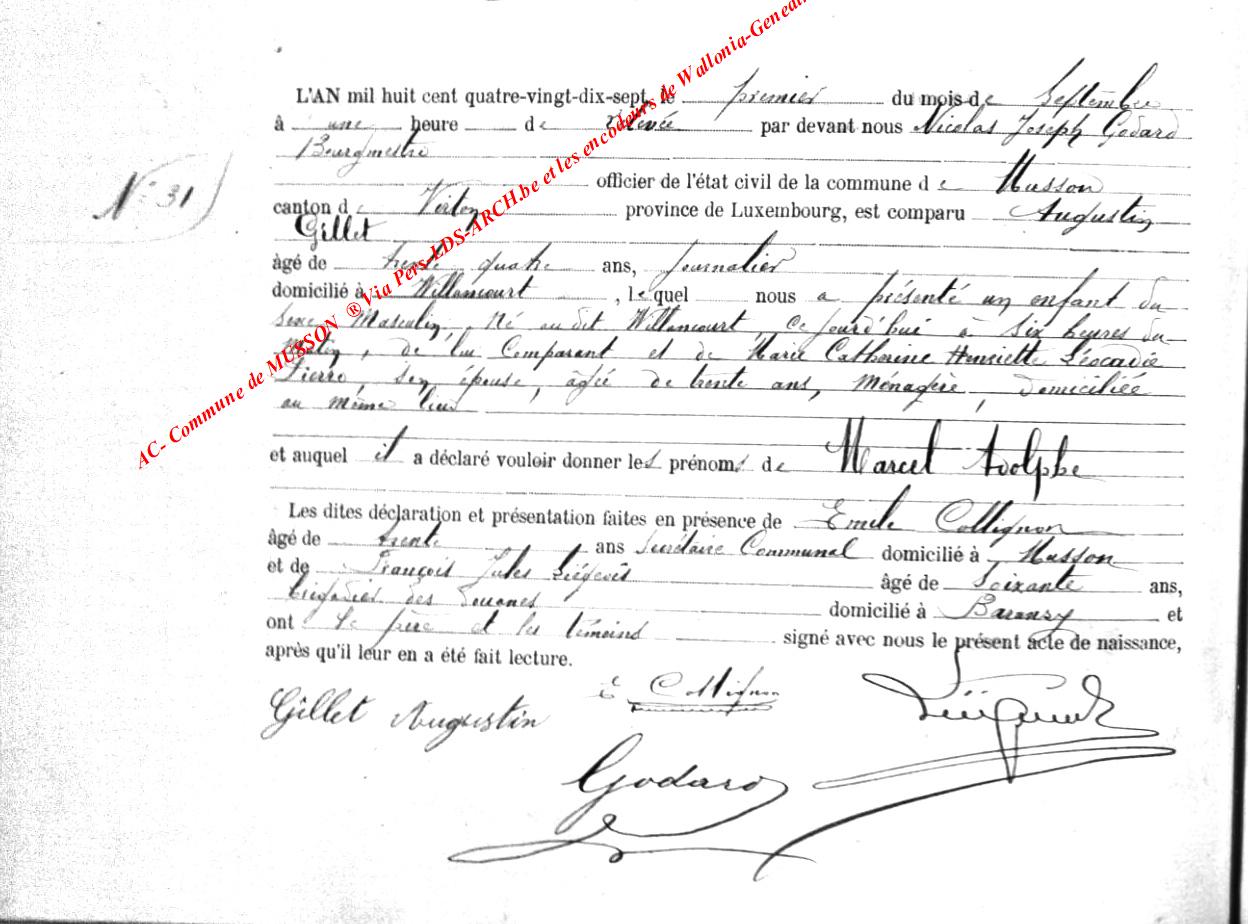 AC- Commune de MUSSON ® Via Pers-LDS-ARCH.be et les encodeurs de Wallonia-Geneal
L'AN mil huit cent quatre-vingt-dix-sept, le premier du mois de Septembre
à une heure de relevée par devant nous Nicolas Joseph Godard
Bourgmestre
N° 31
officier de l'état civil de la commune de Musson
canton de Virton province de Luxembourg, est comparu Augustin
Gillet
âgé de trente quatre ans, journalier
domicilié à Willancourt, le quel nous a présenté un enfant du
sexe Masculin, Né au dit Willancourt, ce jourd'hui à six heures du
Matin, de lui Comparant et de Marie Catherine Henriette Léocadie
Pierre, son épouse, âgée de trente ans, Ménagère, domiciliée
au même lieu
et auquel il a déclaré vouloir donner les prénoms de Marcel Adolphe
Les dites déclaration et présentation faites en présence de Emile Collignon
âgé de trente ans Secrétaire Communal domicilié à Musson
et de François Jules Liégeois âgé de Soixante ans,
brigadier des douanes domicilié à Baranzy et
ont le père et les témoins signé avec nous le présent acte de naissance,
après qu'il leur en a été fait lecture.
Gillet Augustin
E Collignon
Godard